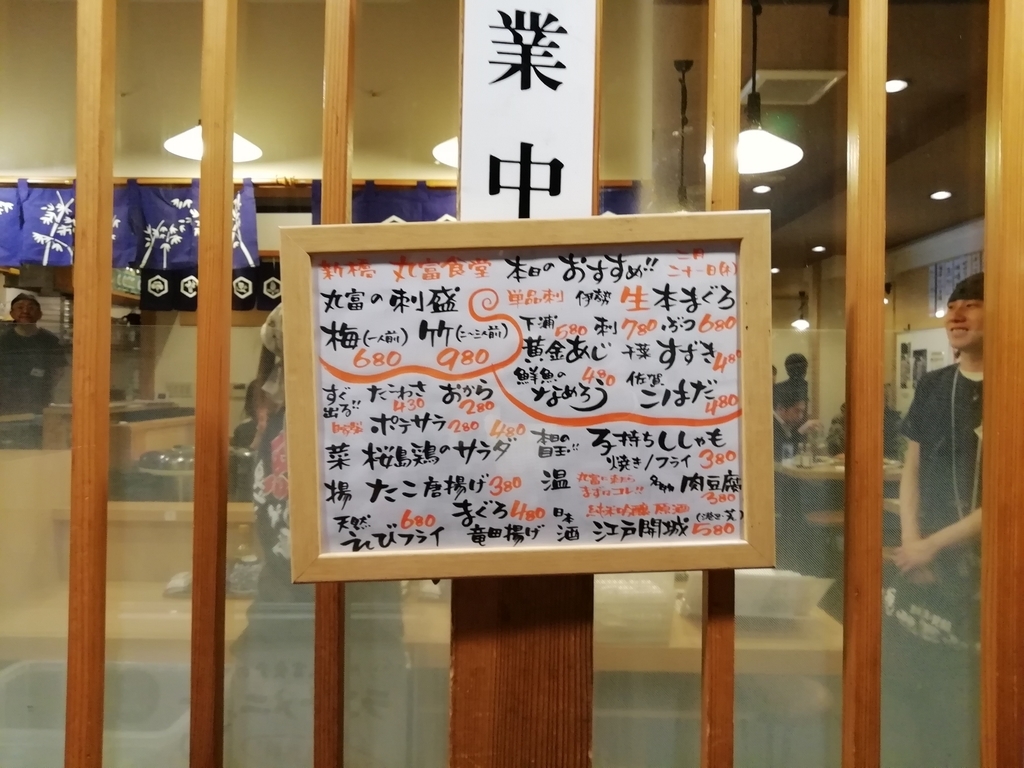 業中
新橋 丸富食堂 本日のおすすめ!!
二月
二十一日(木)
丸富の刺盛
梅(一人前) 竹(二~三人前)
680 980
単品刺 伊勢 生本まぐろ
下浦 580 刺 780 ぶつ 680
黄金あじ 千葉 すずき 480
鮮魚の 480 佐賀
なめろう こはだ 480
すぐ出る!! たこわさ 430 おから 280
自家製 ポテサラ 280 480
菜 桜島鶏のサラダ
揚 たこ唐揚げ 380
天然 680 まぐろ 480
えびフライ 竜田揚げ
本日の 子持ちししゃも
焼き/フライ 380
温 丸富に来たら
まずはコレ!! 肉豆腐
380
日本酒 純米吟醸 原酒
江戸開城 580